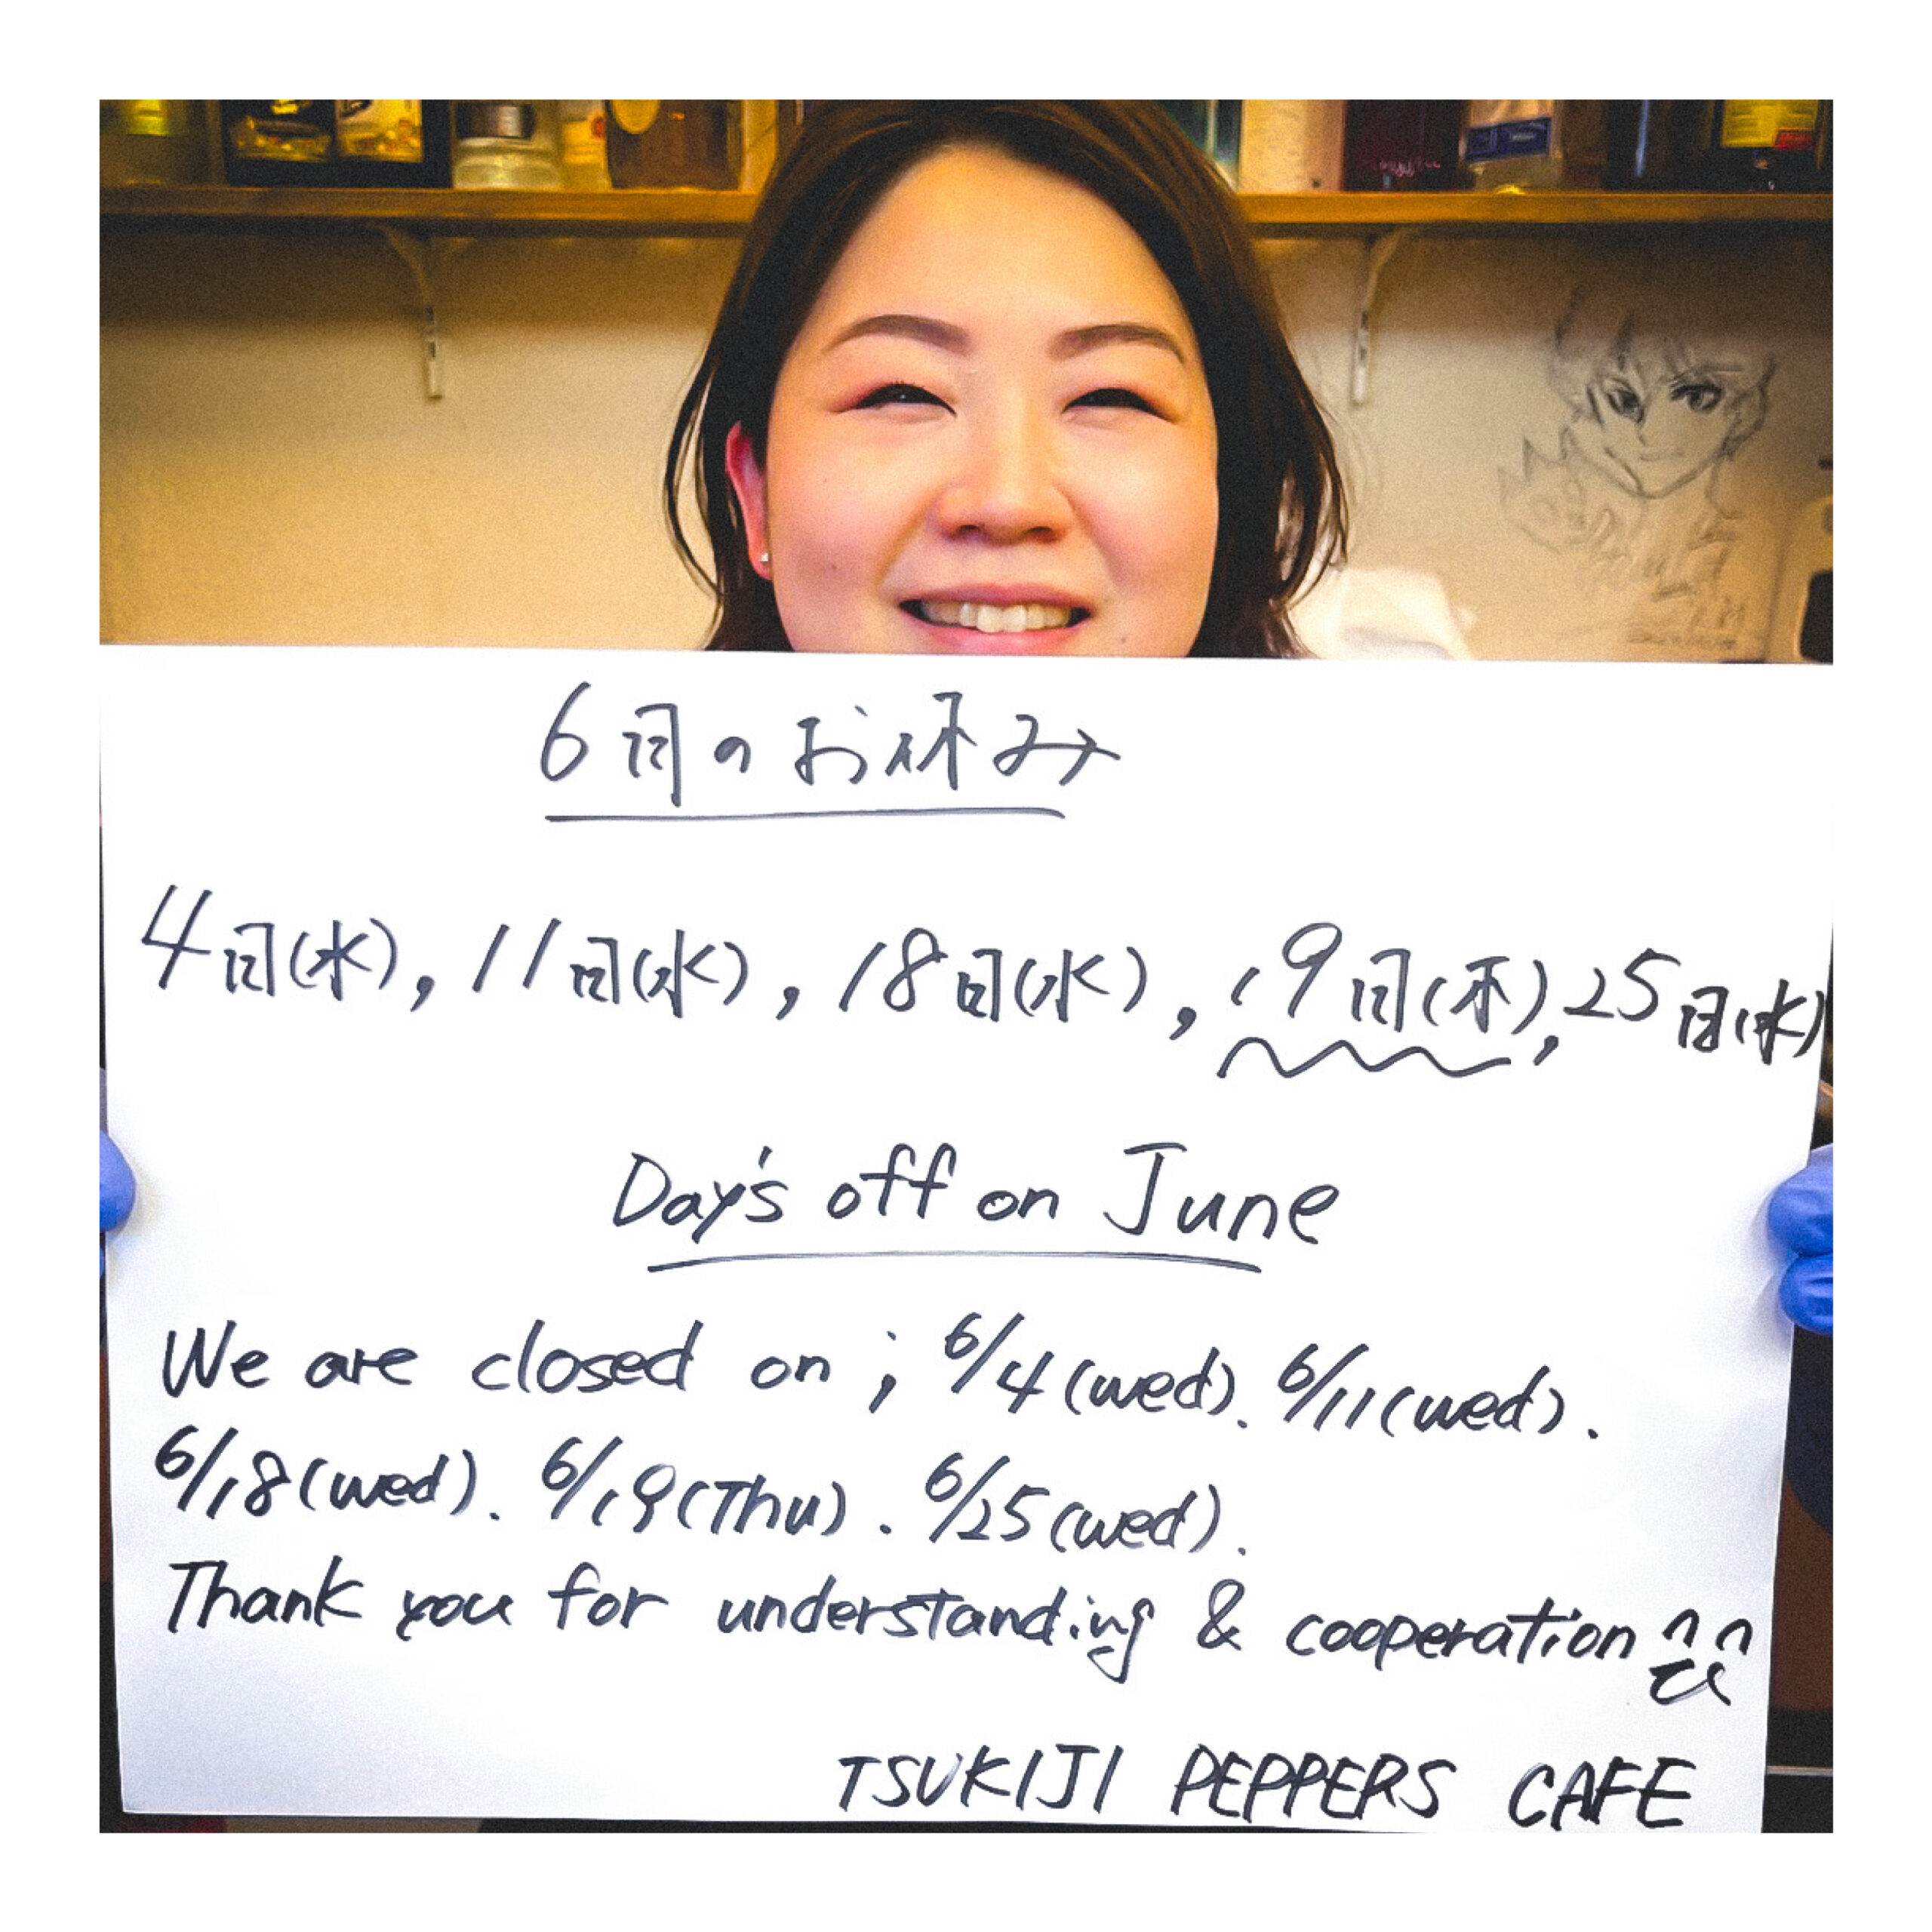 6月のお休み
4日(水), 11日(水), 18日(水), 19日(木), 25日(水)
Day's off on June
We are closed on ; 6/4 (wed). 6/11 (wed).
6/18 (wed). 6/19 (Thu). 6/25 (wed).
Thank you for understanding & cooperation
TSUKIJI PEPPERS CAFE